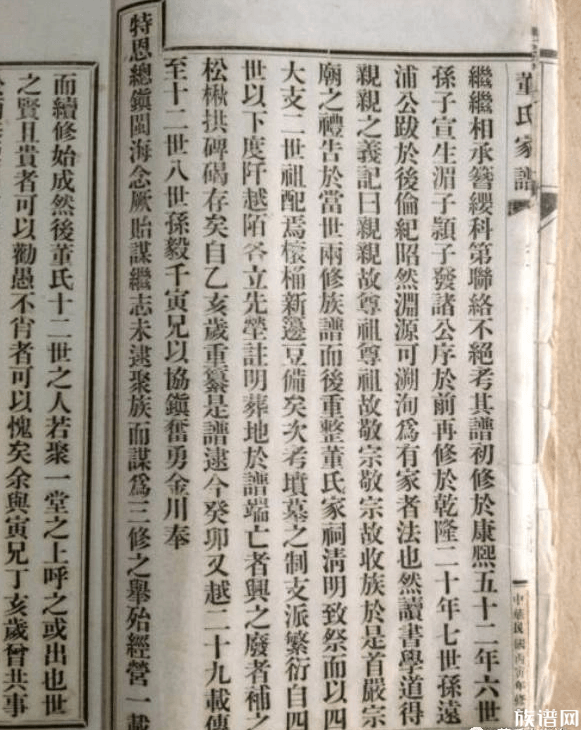 董氏家譜
中華民國丙寅年修
繼繼相承簪纓科第聯絡不絕考其譜初修於康熙五十二年六世
孫子宣生湄子潁子發諸公序於前再修於乾隆二十年七世孫遠
浦公跋於後倫紀昭然淵源可溯洵爲有家者法也然讀書學道得
親親之義記曰親親故尊祖尊祖故敬宗敬宗故收族於是首嚴宗
廟之禮告於當世兩修族譜而後重整董氏家祠淸明致祭而以四
大支二世祖配焉榱桷新籩豆備矣次考墳墓之制支派繁衍自四
世以下度阡越陌各立先塋註明葬地於譜端亡者興之廢者補之
松楸拱碑碣存矣自乙亥歲重纂是譜逮今癸卯又越二十九載傳
至十二世八世孫毅千寅兄以協鎭奮勇金川奉
特恩總鎭閩海念厥貽謀繼志未逮聚族而謀爲三修之舉殆經營一載
而續修始成然後董氏十二世之人若聚一堂之上呼之或出也世
之賢且貴者可以勸愚不肖者可以愧矣余與寅兄丁亥歲曾共事
族谱网